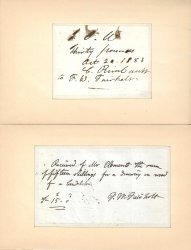 I O U
Thirty pounds
Oct 20 1853
E. Rimbault
to F. W. Fairholt
Received of Mr Clements the sum
of fifteen shillings for a drawing on wood
of a
£ 15. 0
F. W. Fairholt